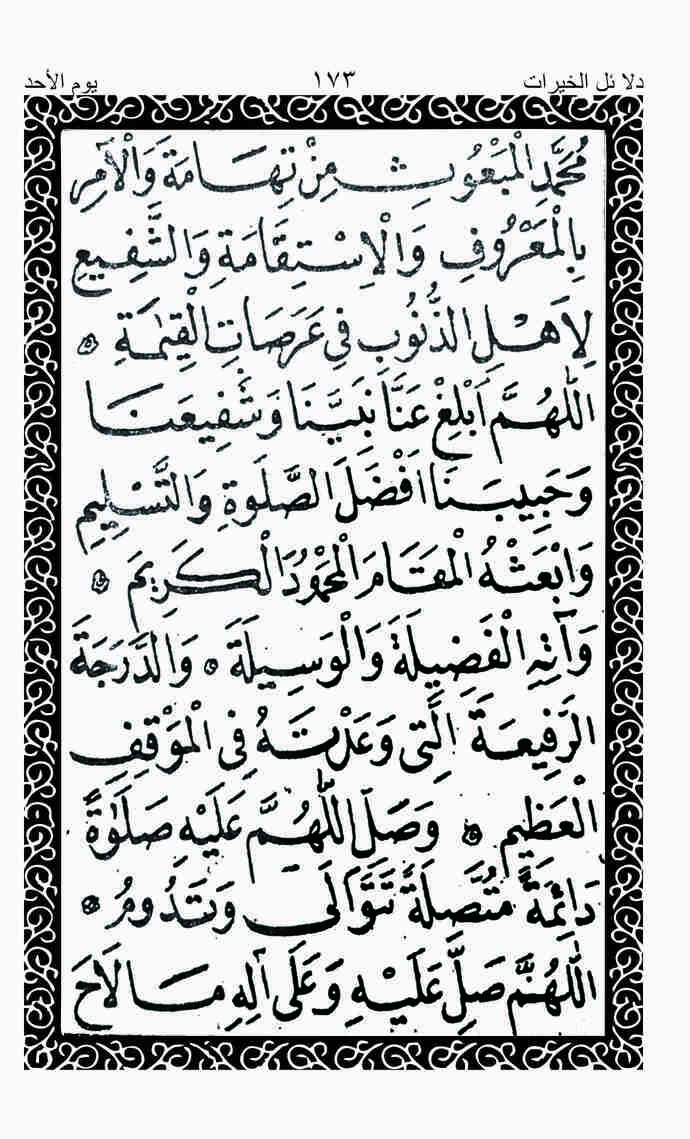 دلائل الخيرات ١٧٣ يوم الأحد
مُحَمَّدِ الْمَبْعُوثِ مِنْ تِهَامَةَ وَالْاٰمِرِ
بِالْمَعْرُوفِ وَالْاِسْتِقَامَةِ وَالشَّفِيعِ
لِاَهْلِ الذُّنُوبِ فِى عَرَصَاتِ الْقِيٰمَةِ
اَللّٰهُمَّ اَبْلِغْ عَنَّا نَبِيَّنَا وَشَفِيعَنَا
وَحَبِيبَنَا اَفْضَلَ الصَّلٰوةِ وَالتَّسْلِيمِ
وَابْعَثْهُ الْمَقَامَ الْمَحْمُودَ الْكَرِيمَ
وَاٰتِهِ الْفَضِيلَةَ وَالْوَسِيلَةَ وَالدَّرَجَةَ
الرَّفِيعَةَ الَّتِى وَعَدْتَهُ فِى الْمَوْقِفِ
الْعَظِيمِ وَصَلِّ اللّٰهُمَّ عَلَيْهِ صَلٰوةً
دَائِمَةً مُتَّصِلَةً تَتَوَالَى وَتَدُومُ
اَللّٰهُمَّ صَلِّ عَلَيْهِ وَعَلَى اٰلِهِ مَا لَاحَ